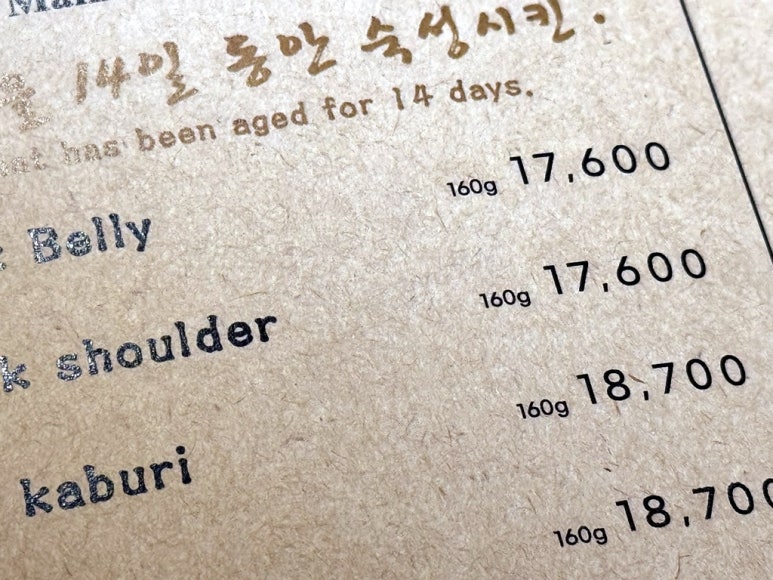 14일 동안 숙성시킨.
has been aged for 14 days.
160g 17,600
Belly
160g 17,600
shoulder
160g 18,700
kaburi
160g 18,700